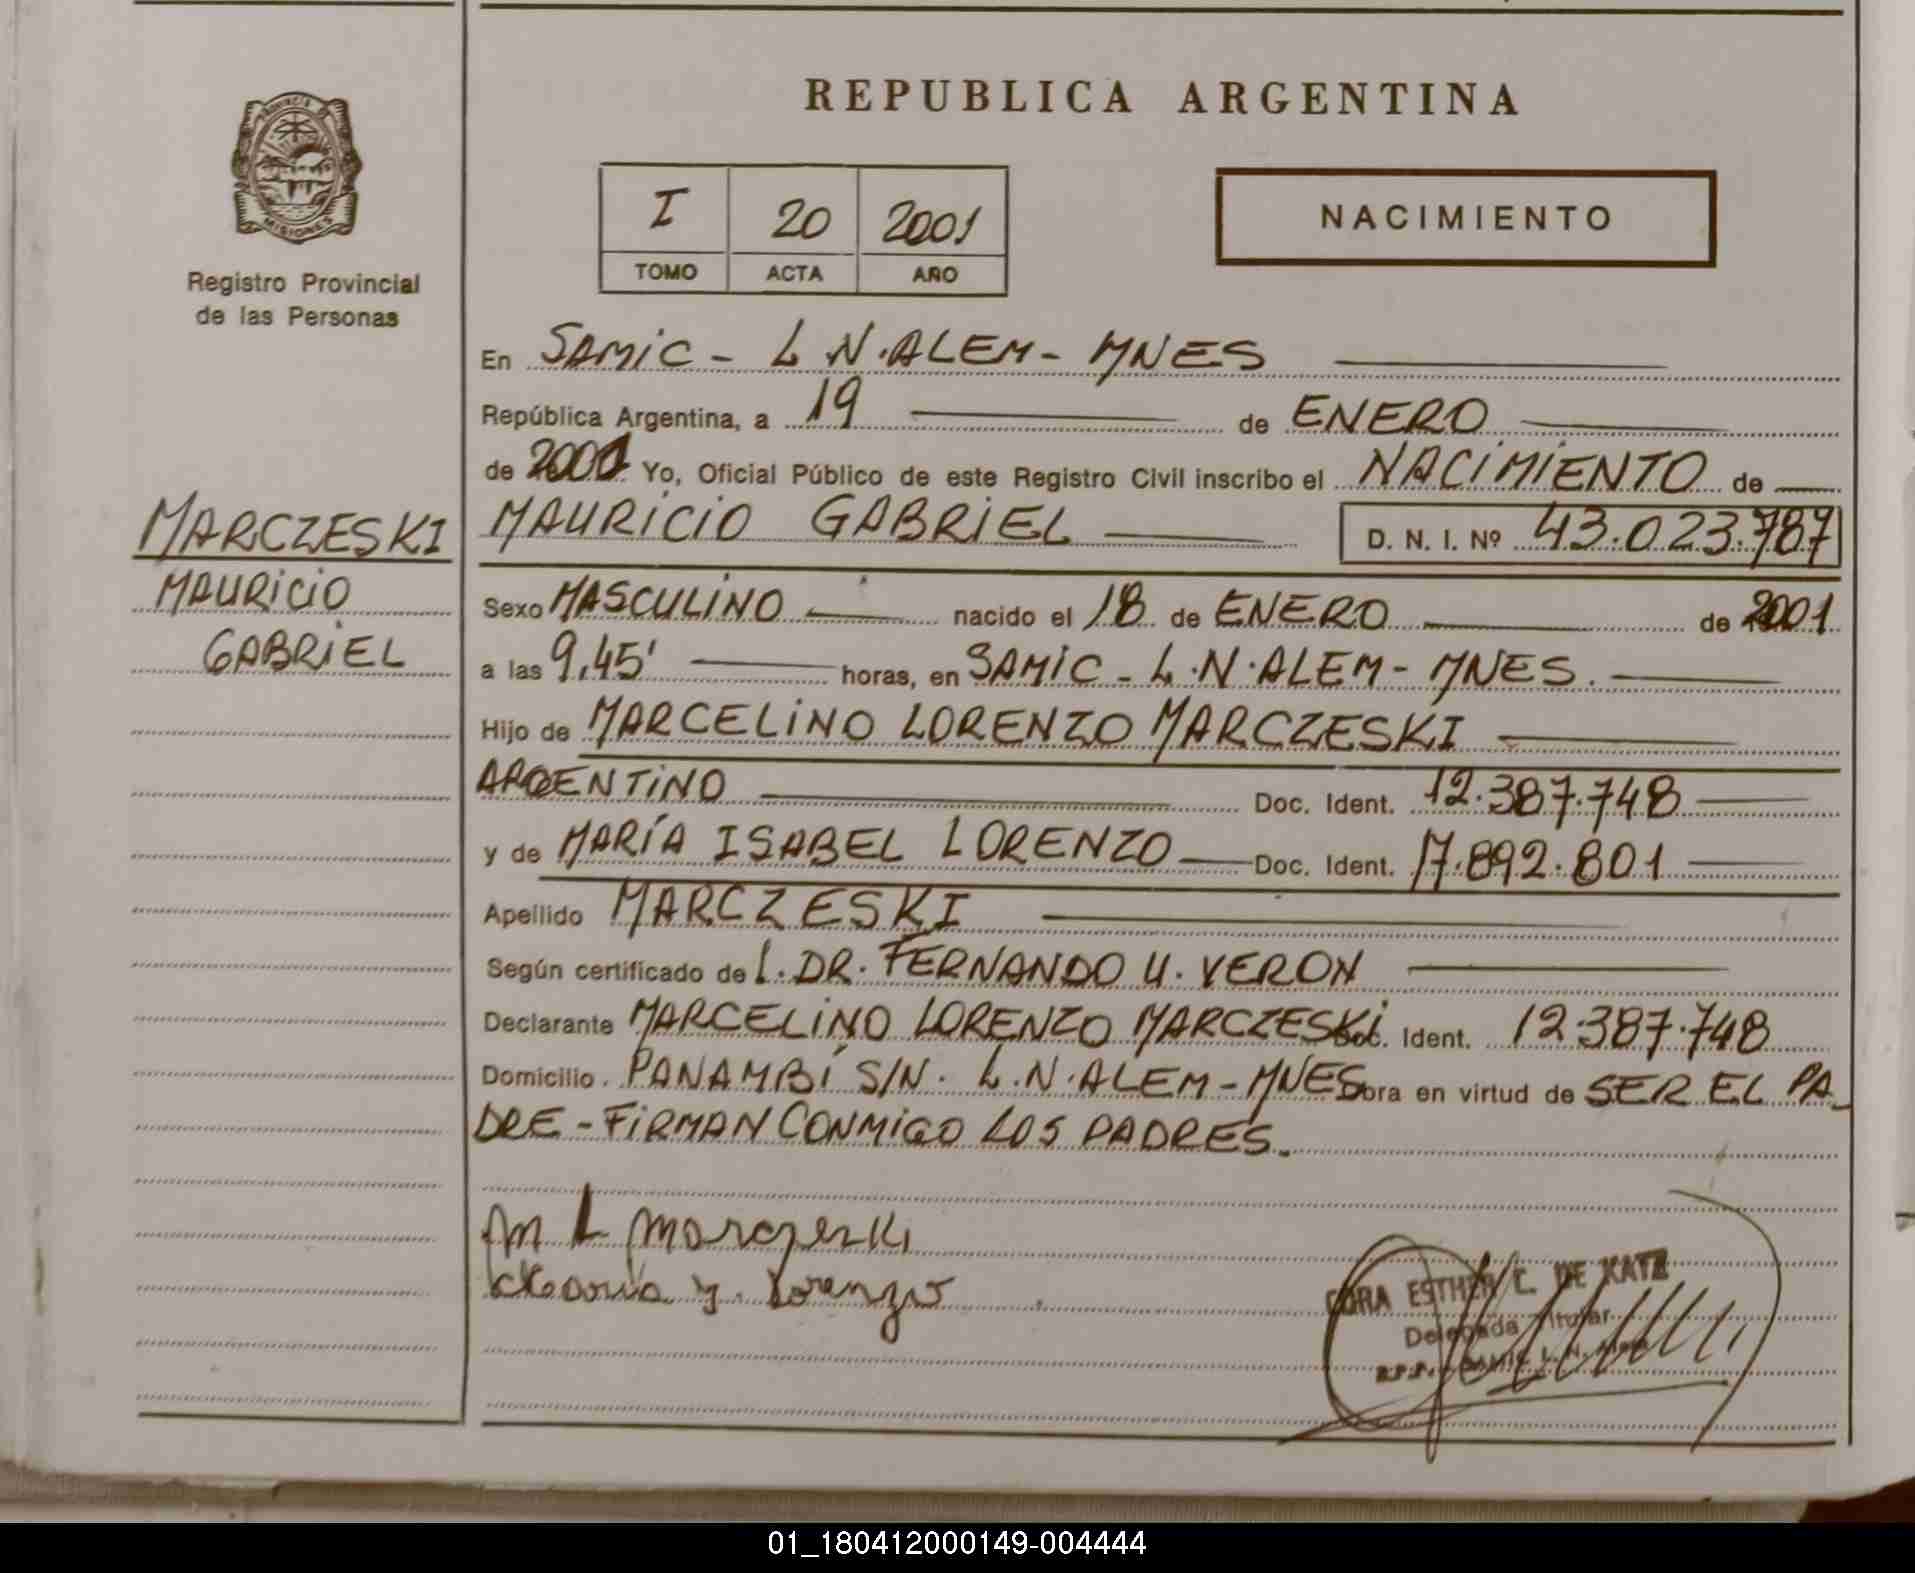 REPUBLICA ARGENTINA
PROVINCIA DE
MISIONES
Registro Provincial
de las Personas
I 20 2001
TOMO ACTA AÑO
NACIMIENTO
En SAMIC - L N. ALEM - MNES
República Argentina, a 19 de ENERO
de 2001 Yo, Oficial Público de este Registro Civil inscribo el NACIMIENTO de
MARCZESKI
MAURICIO
GABRIEL
MAURICIO GABRIEL D. N. I. Nº 43.023.787
Sexo MASCULINO nacido el 18 de ENERO de 2001
a las 9,45' horas, en SAMIC - L.N. ALEM - MNES.
Hijo de MARCELINO LORENZO MARCZESKI
ARGENTINO Doc. Ident. 12.387.748
y de MARÍA ISABEL LORENZO Doc. Ident. 17.892.801
Apellido MARCZESKI
Según certificado de L. DR. FERNANDO U. VERON
Declarante MARCELINO LORENZO MARCZESKI Doc. Ident. 12.387.748
Domicilio PANAMBÍ S/N. L.N. ALEM - MNES Obra en virtud de SER EL PA-
DRE - FIRMAN CONMIGO LOS PADRES.
M L Marczeski
María Y. Lorenzo
CORA ESTHER C. DE KATZ
Delegada Titular
R.P.P. SAMIC L. N. Alem
01_180412000149-004444